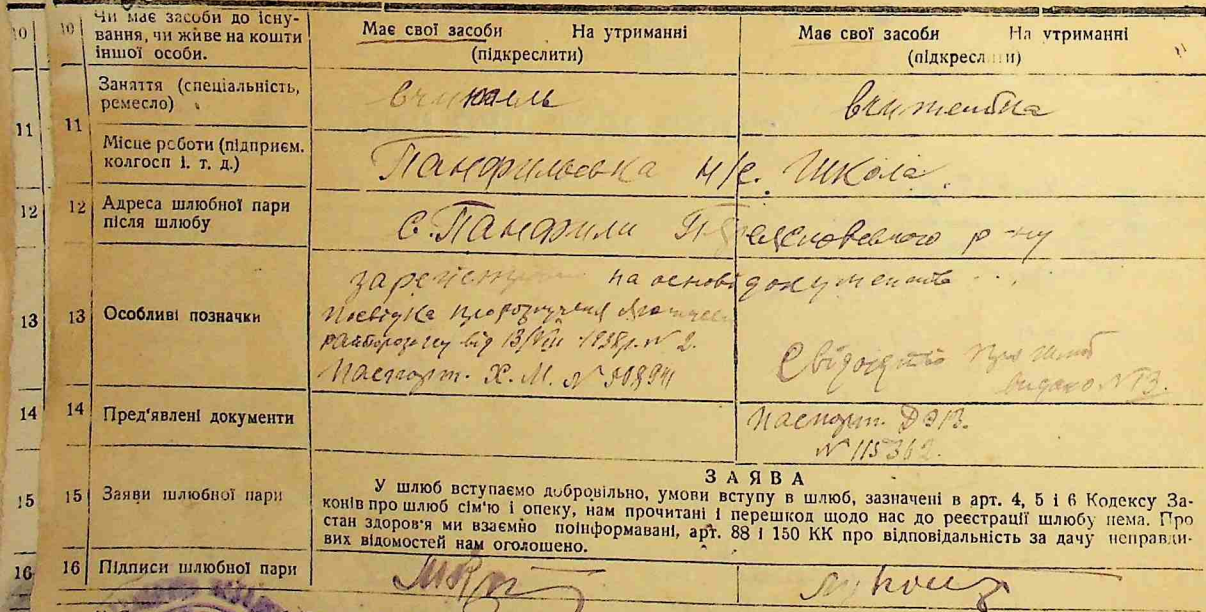 10 10 Чи має засоби до існу-
вання, чи живе на кошти
іншої особи.
Має свої засоби На утриманні
(підкреслити)
Має свої засоби На утриманні
(підкреслити)
11 11 Заняття (спеціальність,
ремесло)
вчитель
вчителька
Місце роботи (підприєм.
колгосп і. т. д.)
Панфильовська н/с. Школа
12 12 Адреса шлюбної пари
після шлюбу
с. Панфили р-ну
13 13 Особливі позначки
на основі документів
Посвідка
від 13/VIII 1938р. № 2.
Паспорт. Х.М. №
Свідоцтво про шлюб
видано № 13.
14 14 Пред'явлені документи
Паспорт.
№ 115362.
15 15 Заяви шлюбної пари
ЗАЯВА
У шлюб вступаємо добровільно, умови вступу в шлюб, зазначені в арт. 4, 5 і 6 Кодексу За-
конів про шлюб сім'ю і опеку, нам прочитані і перешкод щодо нас до реєстрації шлюбу нема. Про
стан здоров'я ми взаємно поінформавані, арт. 88 і 150 КК про відповідальність за дачу неправди-
вих відомостей нам оголошено.
16 16 Підписи шлюбної пари